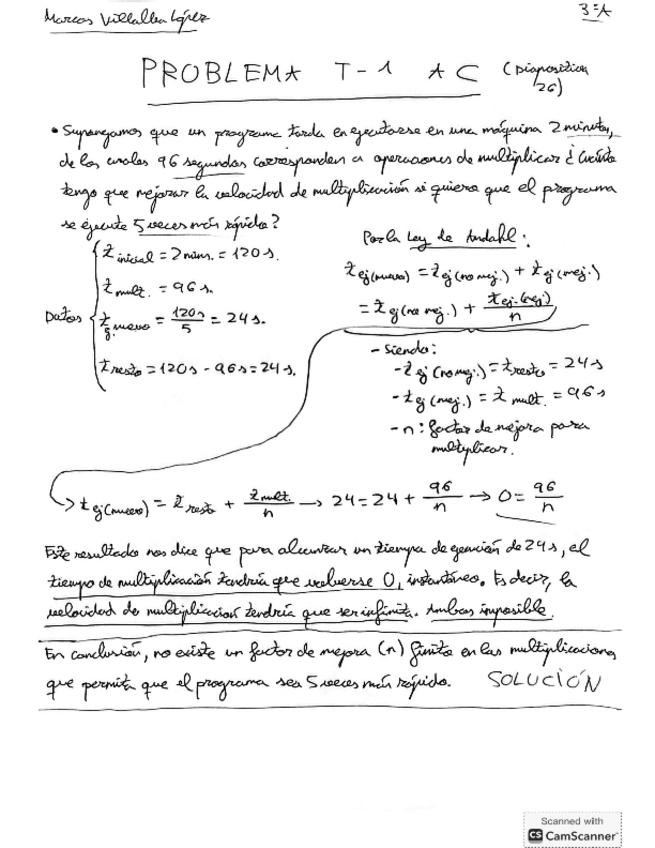 Marcos Villalba López
3ºA
PROBLEMA T-1 AC (Diapositiva
26)
• Supongamos que un programa tarda en ejecutarse en una máquina 2 minutos,
de los cuales 96 segundos corresponden a operaciones de multiplicar ¿ Cuánto
tengo que mejorar la velocidad de multiplicación si quiero que el programa
se ejecute 5 veces más rápido?
Datos
t inicial = 2 mins. = 120 s.
t mult. = 96 s.
t ej. nuevo = 120s/5 = 24 s.
t resto = 120 s - 96 s = 24 s.
Por la Ley de Amdahl :
t ej(nuevo) = t ej(no mej.) + t ej(mej.)
= t ej(no mej.) + t ej.(mej)/n
- Siendo:
- t ej(no mej.) = t resto = 24 s
- t ej(mej.) = t mult. = 96 s
- n : factor de mejora para
multiplicar.
→ t ej(nuevo) = t resto + t mult./n → 24 = 24 + 96/n → 0 = 96/n
Este resultado nos dice que para alcanzar un tiempo de ejecución de 24 s, el
tiempo de multiplicación tendría que volverse 0, instantáneo. Es decir, la
velocidad de multiplicación tendría que ser infinita. Ambas imposible.
En conclusión, no existe un factor de mejora (n) finito en las multiplicaciones
que permita que el programa sea 5 veces más rápido. SOLUCIÓN
Scanned with
CS CamScanner